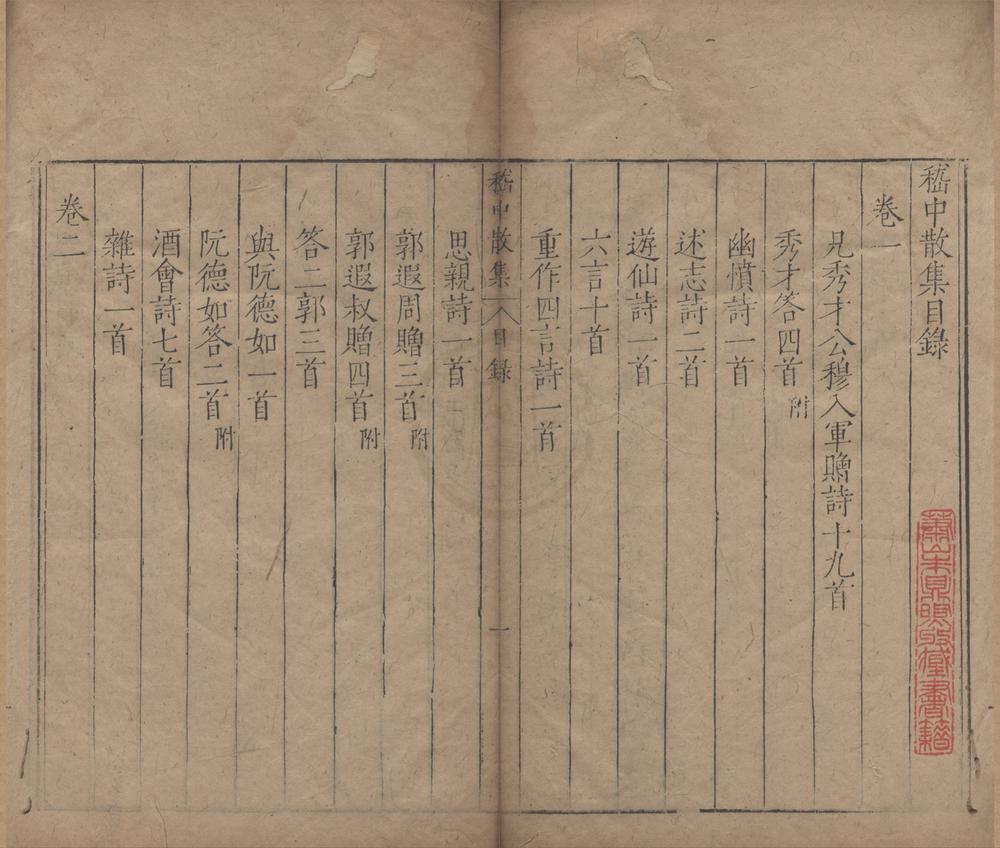 嵇中散集目錄
卷一
兄秀才公穆入軍贈詩十九首
秀才答四首附
幽憤詩一首
述志詩二首
遊仙詩一首
六言十首
重作四言詩一首
嵇中散集 目錄 一
思親詩一首
郭遐周贈三首附
郭遐叔贈四首附
答二郭三首
與阮德如一首
阮德如答二首附
酒會詩七首
雜詩一首
卷二